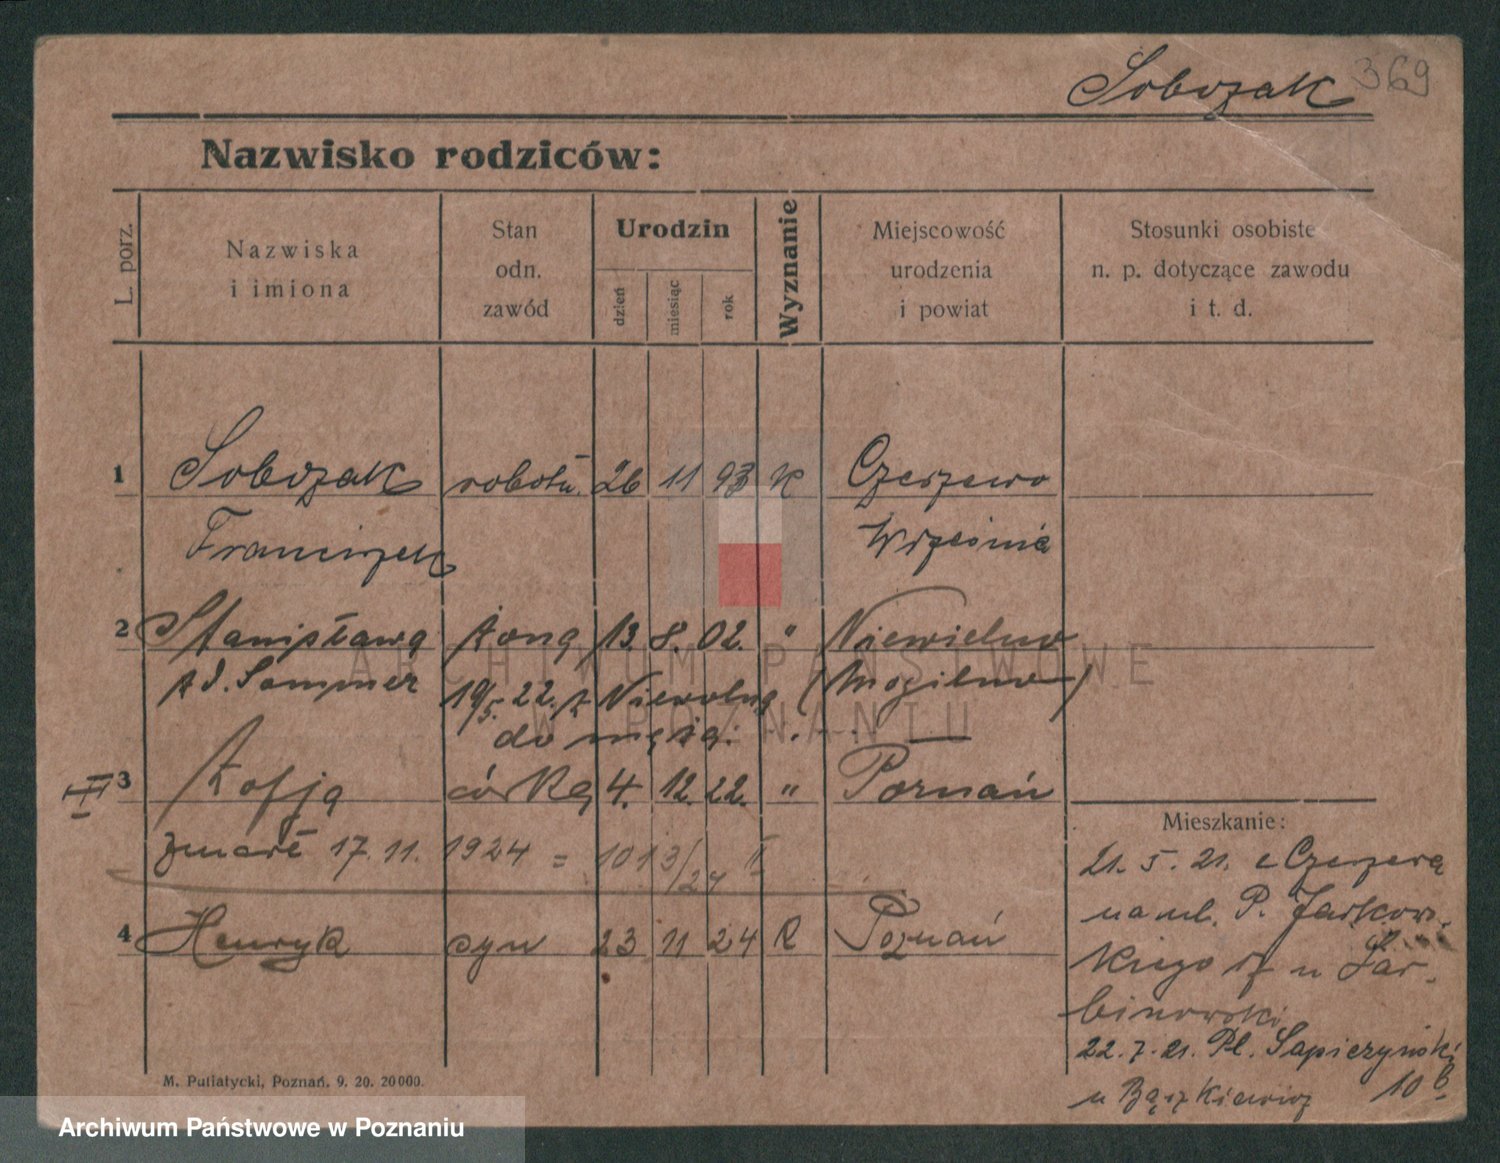 Sobczak 369
Nazwisko rodziców:
L. porz.
Nazwiska
i imiona
Stan
odn.
zawód
Urodzin
dzień
miesiąc
rok
Wyznanie
Miejscowość
urodzenia
i powiat
Stosunki osobiste
n. p. dotyczące zawodu
i t. d.
1 Sobczak robotn. 26 11 93 K Czeszewo
Franciszek Września
2 Stanisława żona 13. 8. 02. " Niewolno
z d. Sommer 19/5. 22. z Niewolna (Mogilno)
do męża.
3 Zofja córka 4. 12. 22. " Poznań
zmarł 17.11. 1924 = 1013/24 II
4 Henryk syn 23 11 24 K Poznań
Mieszkanie:
21. 5. 21. z Czeszewa
na ul. P. Jackow-
kiego 17 u
22. 7. 21. Pl. Sapieżyński
u 10 b.
M. Putiatycki, Poznań. 9. 20. 20000.
ARCHIWUM PAŃSTWOWE
W POZNANIU
Archiwum Państwowe w Poznaniu